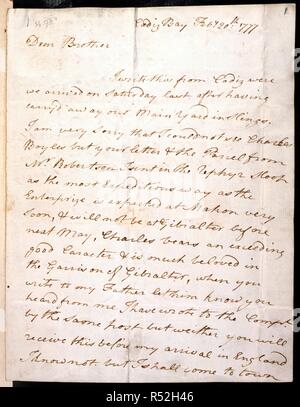 Cadiz Bay Feby 20th 1777
Dear Brother
I write this from Cadiz were
we arrived on Saturday last after having
carry'd away our Main Yard in Slings.
I am very Sorry that I could not see Charles
Boyles but your letter & the Parcel from
Mr Robertson I sent in the Zephyr Sloop
as the most Expeditious way as the
Enterprize is expected at Mahon very
Soon, & will not be at Gibralter before
next May, Charles bears an exceeding
good Caracter & is much beloved in
the Garrison of Gibralter, when you
write to my Father let him know you
heard from me I have wrote to the Compt.
by the same post but weither you will
receive this before my arrival in England
I know not but I shall come to town
alamy
Image ID: R52H46
www.alamy.com